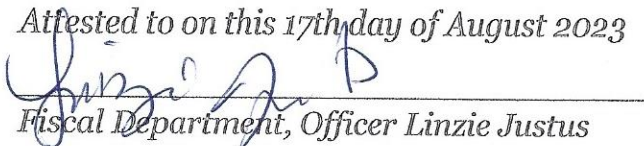 Attested to on this 17th day of August 2023
Linzie Just
Fiscal Department, Officer Linzie Justus